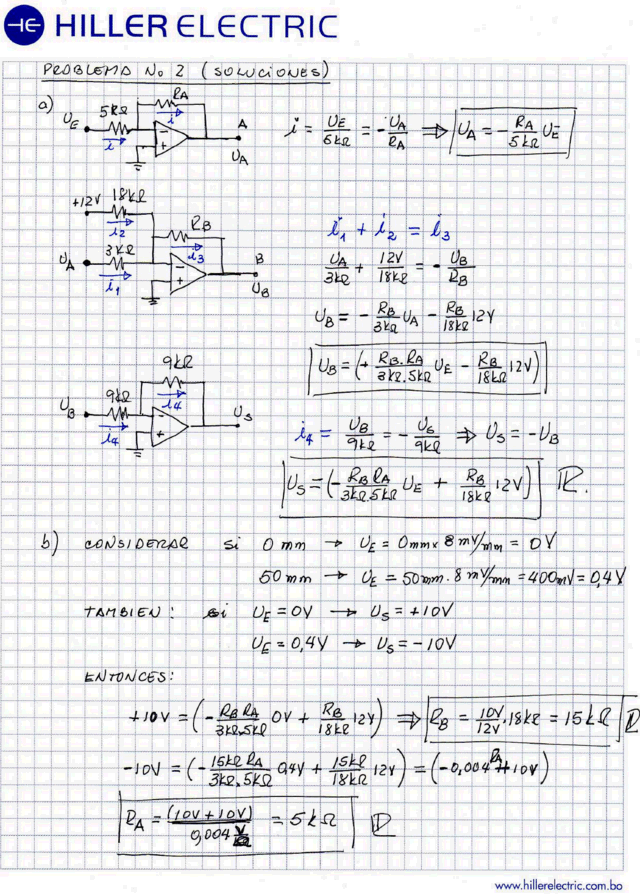 HILLER ELECTRIC
PROBLEMA No 2 (SOLUCIONES)
a)
5kΩ RA
UE i i A
UA
i = UE/5kΩ = -UA/RA ⇒ UA = -RA/5kΩ UE
+12V 18kΩ
i2 RB
UA 3kΩ i3 B
i1 UB
i1 + i2 = i3
UA/3kΩ + 12V/18kΩ = -UB/RB
UB = -RB/3kΩ UA - RB/18kΩ 12V
UB = (+ RB.RA/3kΩ.5kΩ UE - RB/18kΩ 12V)
9kΩ
9kΩ i4
UB i4 US
i4 = UB/9kΩ = -US/9kΩ ⇒ US = -UB
US = (-RB RA/3kΩ.5kΩ UE + RB/18kΩ 12V) R.
b) CONSIDERAR si 0 mm → UE = 0mm x 8 mV/mm = 0V
50 mm → UE = 50mm . 8 mV/mm = 400mV = 0,4V
TAMBIEN: si UE = 0V → US = +10V
UE = 0,4V → US = -10V
ENTONCES:
+10V = (-RB RA/3kΩ.5kΩ 0V + RB/18kΩ 12V) ⇒ RB = 10V/12V . 18kΩ = 15kΩ R
-10V = (-15kΩ RA/3kΩ.5kΩ 0,4V + 15kΩ/18kΩ 12V) = (-0,004 RA + 10V)
RA = (10V + 10V)/0,004 V = 5kΩ R
www.hillerelectric.com.bo